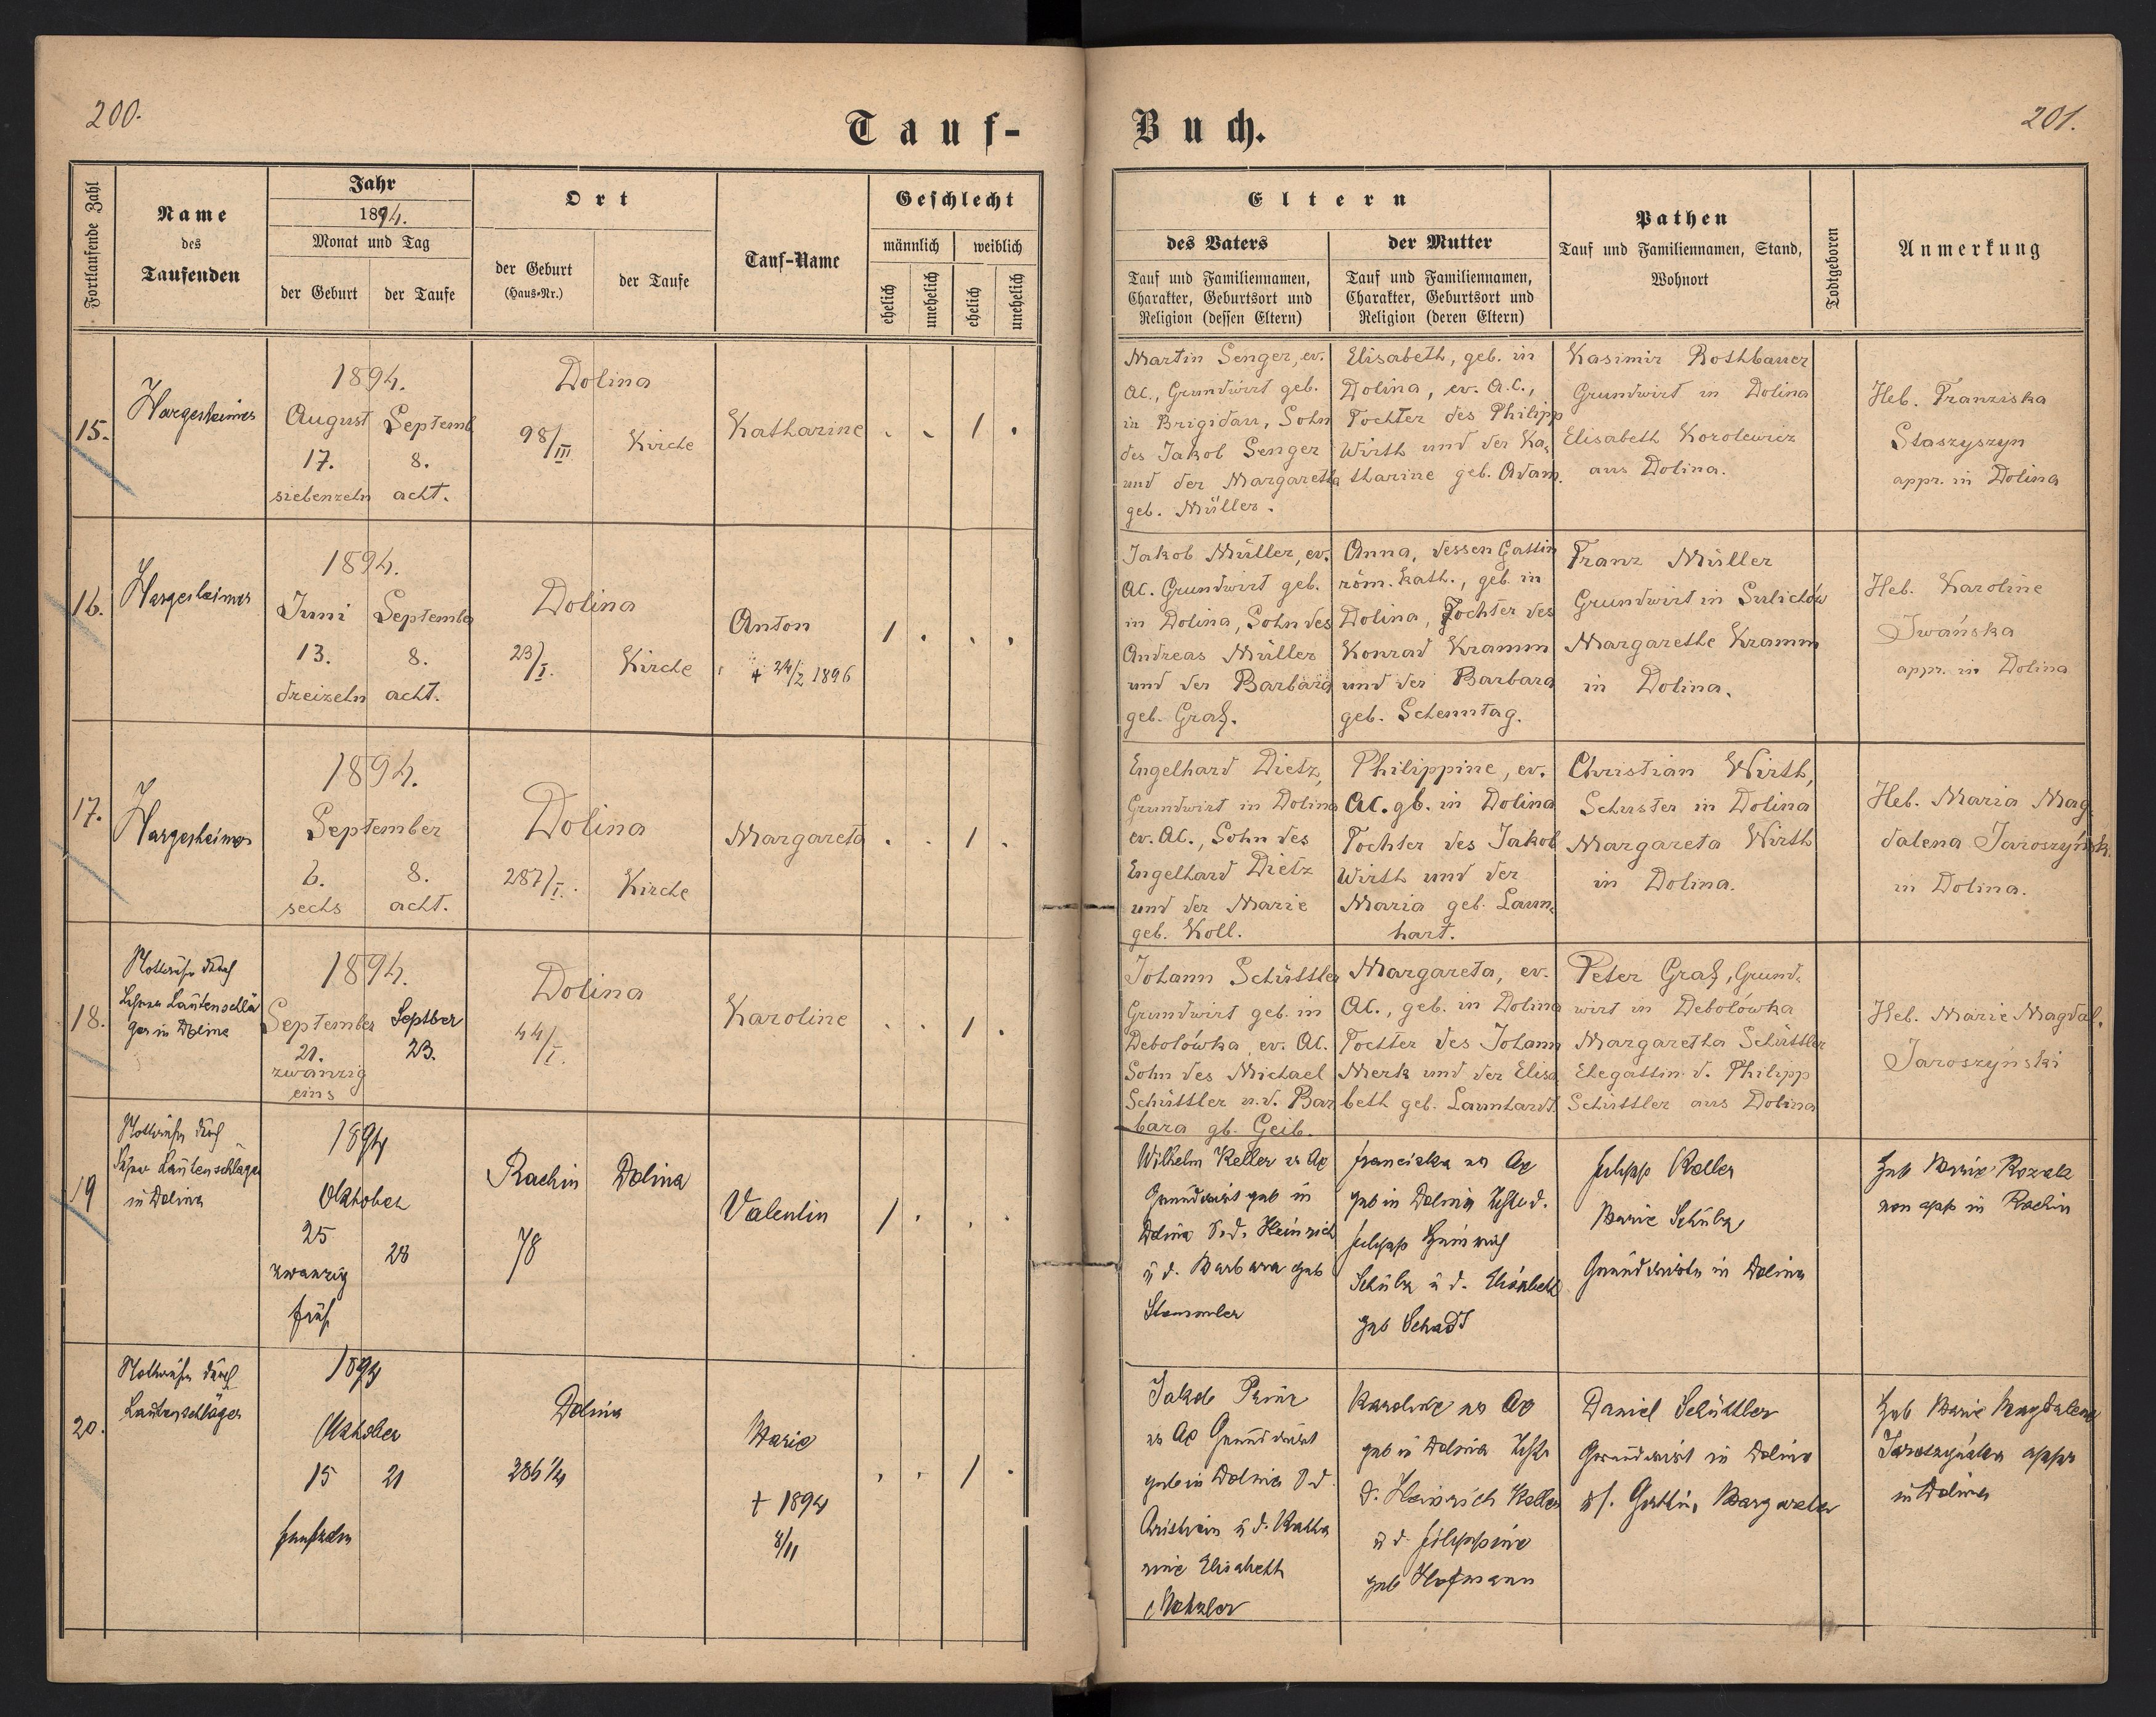 200.
Tauf-
Fortlaufende Zahl
Name
des
Taufenden
Jahr
1894.
Monat und Tag
der Geburt
der Taufe
Ort
der Geburt
(Haus-Nr.)
der Taufe
Tauf-Name
Geschlecht
männlich
weiblich
ehelich
unehelich
ehelich
unehelich
15.
Hargesheimer
1894.
August
17.
siebenzehn
Septemb
8.
acht.
Dolina
98/III
Kirche
Katharine
1
16.
Hargesheimer
1894.
Juni
13.
dreizehn
September
8.
acht.
Dolina
23/I.
Kirche
Anton
+ 24/2 1896
1
17.
Hargesheimer
1894.
September
6.
sechs
8.
acht.
Dolina
287/I.
Kirche
Margareta
1
18.
Nottaufe durch
Lehrer Lautenschlä
ger in Dolina
1894.
September
21.
zwanzig
eins
Septber
23.
Dolina
44/I.
Karoline
1
19
Nottaufe durch
Lehrer Lautenschläger
in Dolina
1894
Oktober
25
zwanzig
fünf
28
Rachin
78
Dolina
Valentin
1
20.
Nottaufe durch
Lautenschläger
1894
Oktober
15
fünfzehn
21
Dolina
286 1/4
Marie
† 1894
8/11
1
Buch.
201.
Eltern
des Vaters
Tauf und Familiennamen,
Charakter, Geburtsort und
Religion (dessen Eltern)
der Mutter
Tauf und Familiennamen,
Charakter, Geburtsort und
Religion (deren Eltern)
Pathen
Tauf und Familiennamen, Stand,
Wohnort
Todtgeboren
Anmerkung
Martin Senger, ev.
AC., Grundwirt geb.
in Brigidau, Sohn
des Jakob Senger
und der Margaretha
geb. Müller.
Elisabeth, geb. in
Dolina, ev. A.C.,
Tochter des Philipp
Wirth und der Ka-
tharine geb. Adam.
Kasimir Rothbauer
Grundwirt in Dolina
Elisabeth Korolewicz
aus Dolina.
Heb. Franziska
Staszyszyn
appr. in Dolina
Jakob Müller, ev.
AC. Grundwirt geb.
in Dolina, Sohn des
Andreas Müller
und der Barbara
geb. Graf.
Anna, dessen Gattin
röm. kath., geb. in
Dolina, Tochter des
Konrad Kramm
und der Barbara
geb. Schenntag.
Franz Müller
Grundwirt in Sulichów
Margarethe Kramm
in Dolina.
Heb. Karoline
Iwańska
appr. in Dolina
Engelhard Dietz,
Grundwirt in Dolina
ev. AC., Sohn des
Engelhard Dietz
und der Marie
geb. Koll.
Philippine, ev.
AC. gb. in Dolina
Tochter des Jakob
Wirth und der
Maria geb. Laun-
hart.
Christian Wirth,
Schuster in Dolina
Margareta Wirth
in Dolina.
Heb. Maria Mag
dalena Jaroszyńsk.
in Dolina.
Johann Schüttler
Grundwirt geb. in
Debolówka, ev. AC.
Sohn des Michael
Schüttler u. d. Bar
bara gb. Geib.
Margareta, ev.
AC., geb. in Dolina
Tochter des Johann
Merk und der Elisa
beth geb. Launhardt.
Peter Graf, Grund-
wirt in Debolówka
Margaretha Schüttler
Ehegattin d. Philipp
Schüttler aus Dolina
Heb. Marie Magdal.
Jaroszyński
Wilhelm Keller ev Ac
Grundwirt geb in
Dolina S. d. Heinrich
u d. Barbara geb
Stammler
Franciska ev Ac
geb in Dolina Tcht d.
Filipp Heinrich
Schülz u d. Elisabeth
geb Schadt
Filipp Keller
Marie Schülz
Grundwirte in Dolina
Heb Marie Kozak
non app in Rachin
Jakob Prinz
ev Ac Grundwirt
geb in Dolina S d
Christian u d. Katha
rine Elisabeth
Karoline ev Ac
geb in Dolina Tcht
d. Heinrich Keller
u d. Filippine
geb Hofmann
Daniel Schüttler
Grundwirt in Dolina
Gattin, Margareta
Heb Marie Magdalena
Jaroszyńska appr
in Dolina